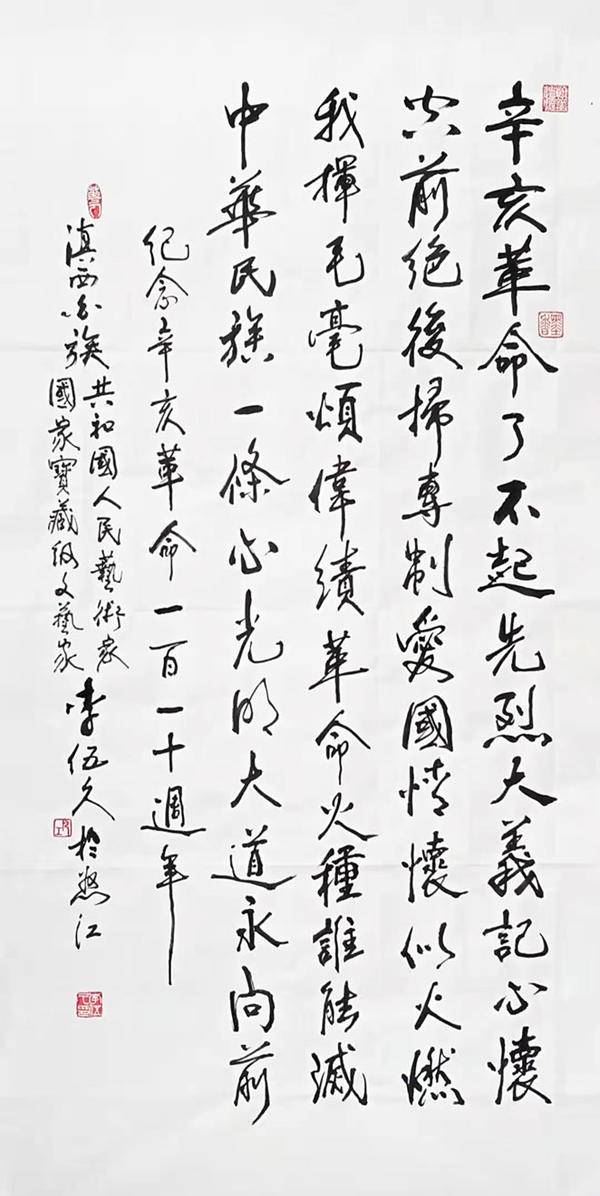 辛亥革命了不起先烈大義記心懷
空前絕後掃專制愛國情懷似火燃
我揮毛毫頌偉績革命火種誰能滅
中華民族一條心光明大道永向前
紀念辛亥革命一百一十週年
滇西白族
共和國人民藝術家
國家寶藏級文藝家
李伍久於怒江